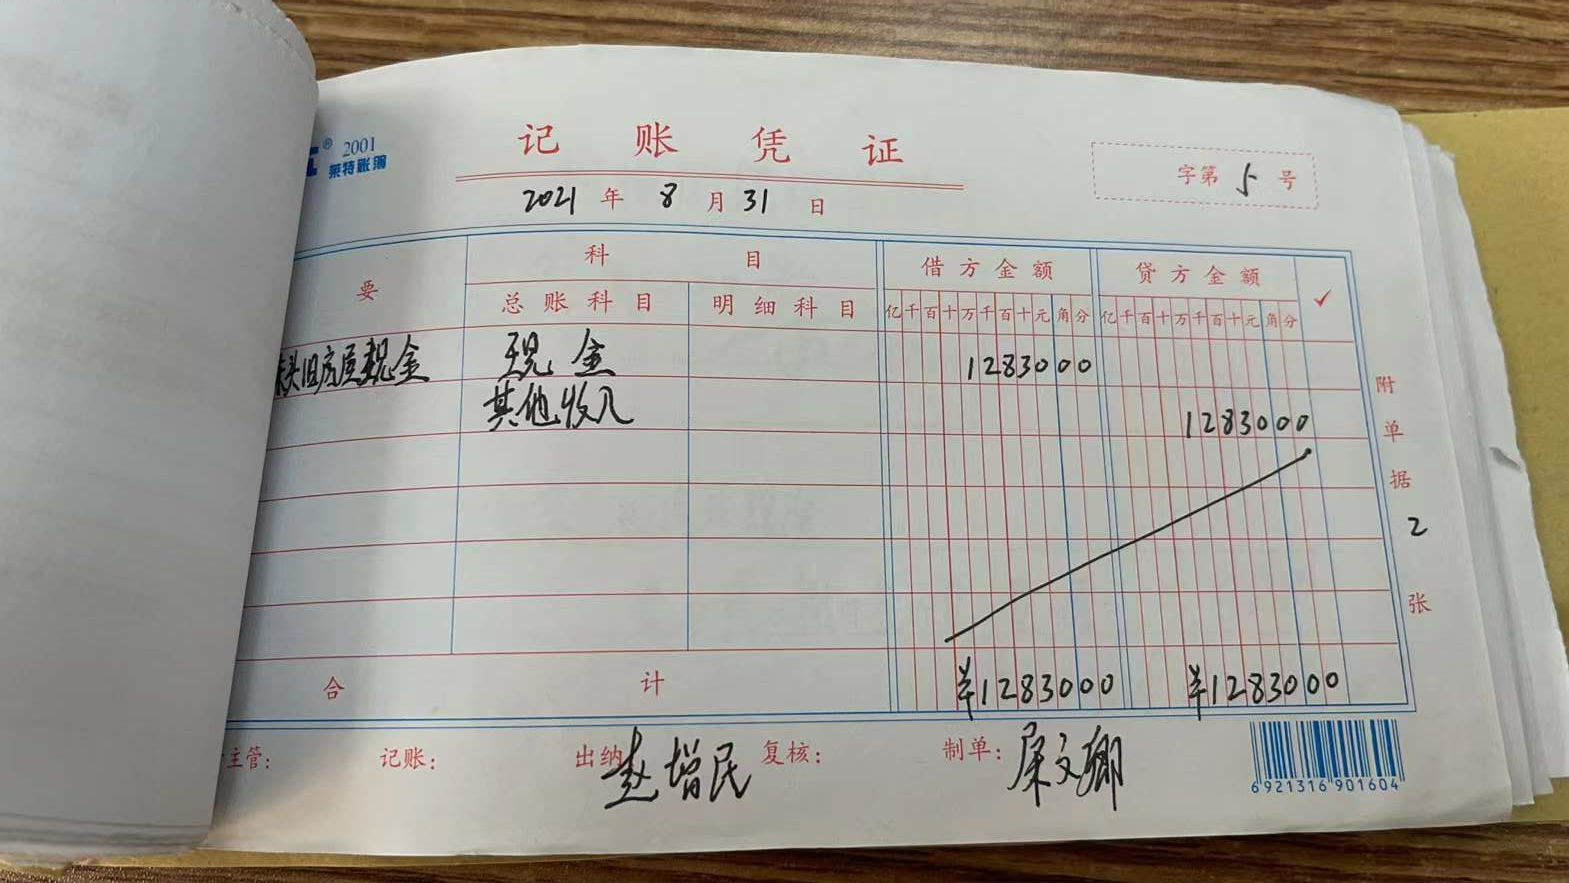 ® 2001
莱特账簿
记账凭证
2021年8月31日
字第5号
要 科目 借方金额 贷方金额 ✓
总账科目 明细科目 亿千百十万千百十元角分 亿千百十万千百十元角分
头旧房屋现金 现金 1283000
其他收入 1283000
附单据2张
合计 ¥1283000 ¥1283000
主管: 记账: 出纳 赵增民 复核: 制单: 文卿
6921316901604